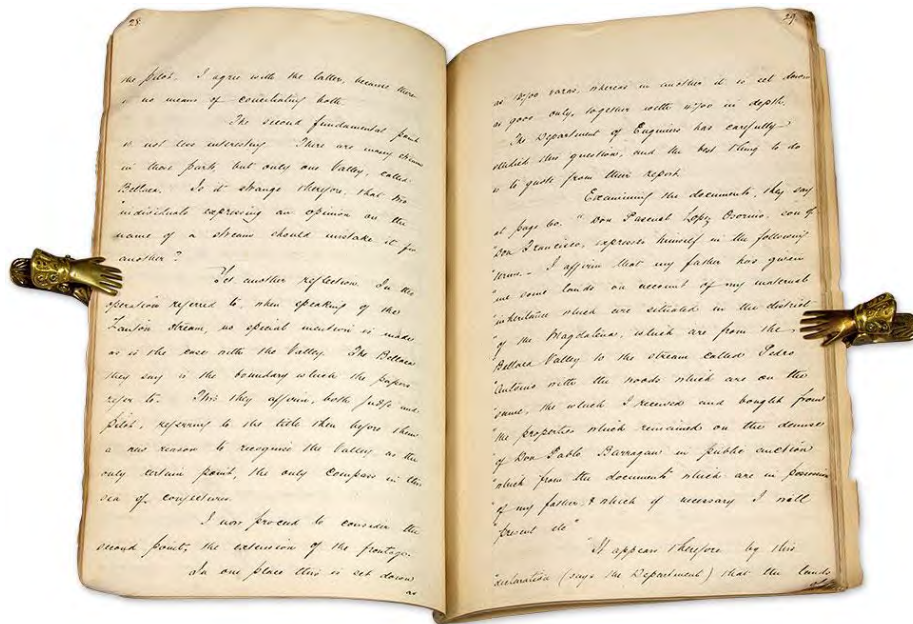 28
the pilot. I agree with the latter, because there
is no means of conciliating both
The second fundamental point
is not less interesting. There are many streams
in those parts, but only one Valley, called
Bellaca. Is it strange therefore, that two
individuals expressing an opinion on the
name of a stream should mistake it for
another?
Yet another reflection. In the
operation referred to, when speaking of the
stream, no special mention is made
as is the case with the Valley. The Bellaca
they say is the boundary which the papers
refer to. This they affirm, both Judge and
pilot, referring to the title then before them
a new reason to recognise the Valley as the
only certain point, the only compass in this
sea of conjectures.
I now proceed to consider the
second point, the extension of the frontage.
In one place this is set down
as
29
as varas, whereas in another it is set down
as 9000 only, together with in depth.
The Department of Engineers has carefully
studied this question, and the best thing to do
is to quote from their report.
Examining the documents, they say
at page 60. "Don Pascual Lopez Osornio, son of
Don Francisco, expresses himself in the following
"terms. - I affirm that my father has given
"me some lands on account of my maternal
"inheritance which are situated in the district
"of the Magdalena, which are from the
Bellaca Valley to the stream called Pedro
"Antonio with the woods which are on the
"same, the which I received and bought from
"the properties which remained on the demise
"of Don Pablo Barragan in public auction
"which from the documents which are in possession
"of my father, & which if necessary I will
present etc"
"It appears therefore by this
"declaration (says the Department) that the lands